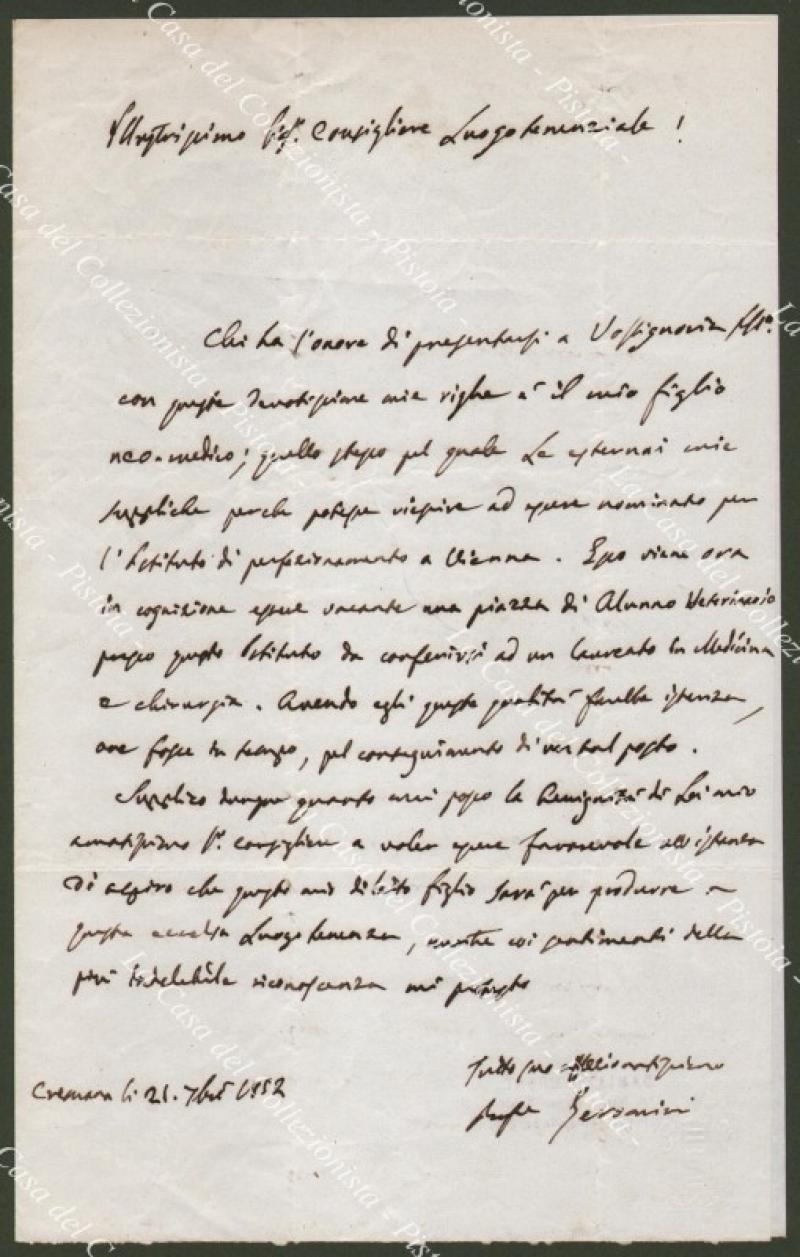 Illustrissimo Sigr. Consigliere Luogotenenziale!
Chi ha l'onore di presentarsi a Vossignoria Illa.
con queste devotissime mie righe è il mio figlio
neo-medico; quello stesso pel quale Le esternai mie
suppliche perche potesse riescire ad essere nominato per
l'Istituto di perfezionamento a Vienna. Esso viene ora
in cognizione essere vacante una piazza di Alunno Veterinario
presso questo Istituto da conferirsi ad un laureato in Medicina
e chirurgia. Avendo egli queste qualità istanza,
ove fosse in tempo, pel conseguimento di un tal posto.
Supplico dunque quanto mai posso la benignità di Lei mio
amatissimo Sr. consigliere a voler essere favorevole all'istanza
di aspiro che questo mio diletto figlio sarà per produrre a
questa eccelsa Luogotenenza, mentre coi sentimenti della
più indelebile riconoscenza mi protesto
Tutto suo
Cremona li 21. 7bre 1852
La Casa del Collezionista - Pistoia -